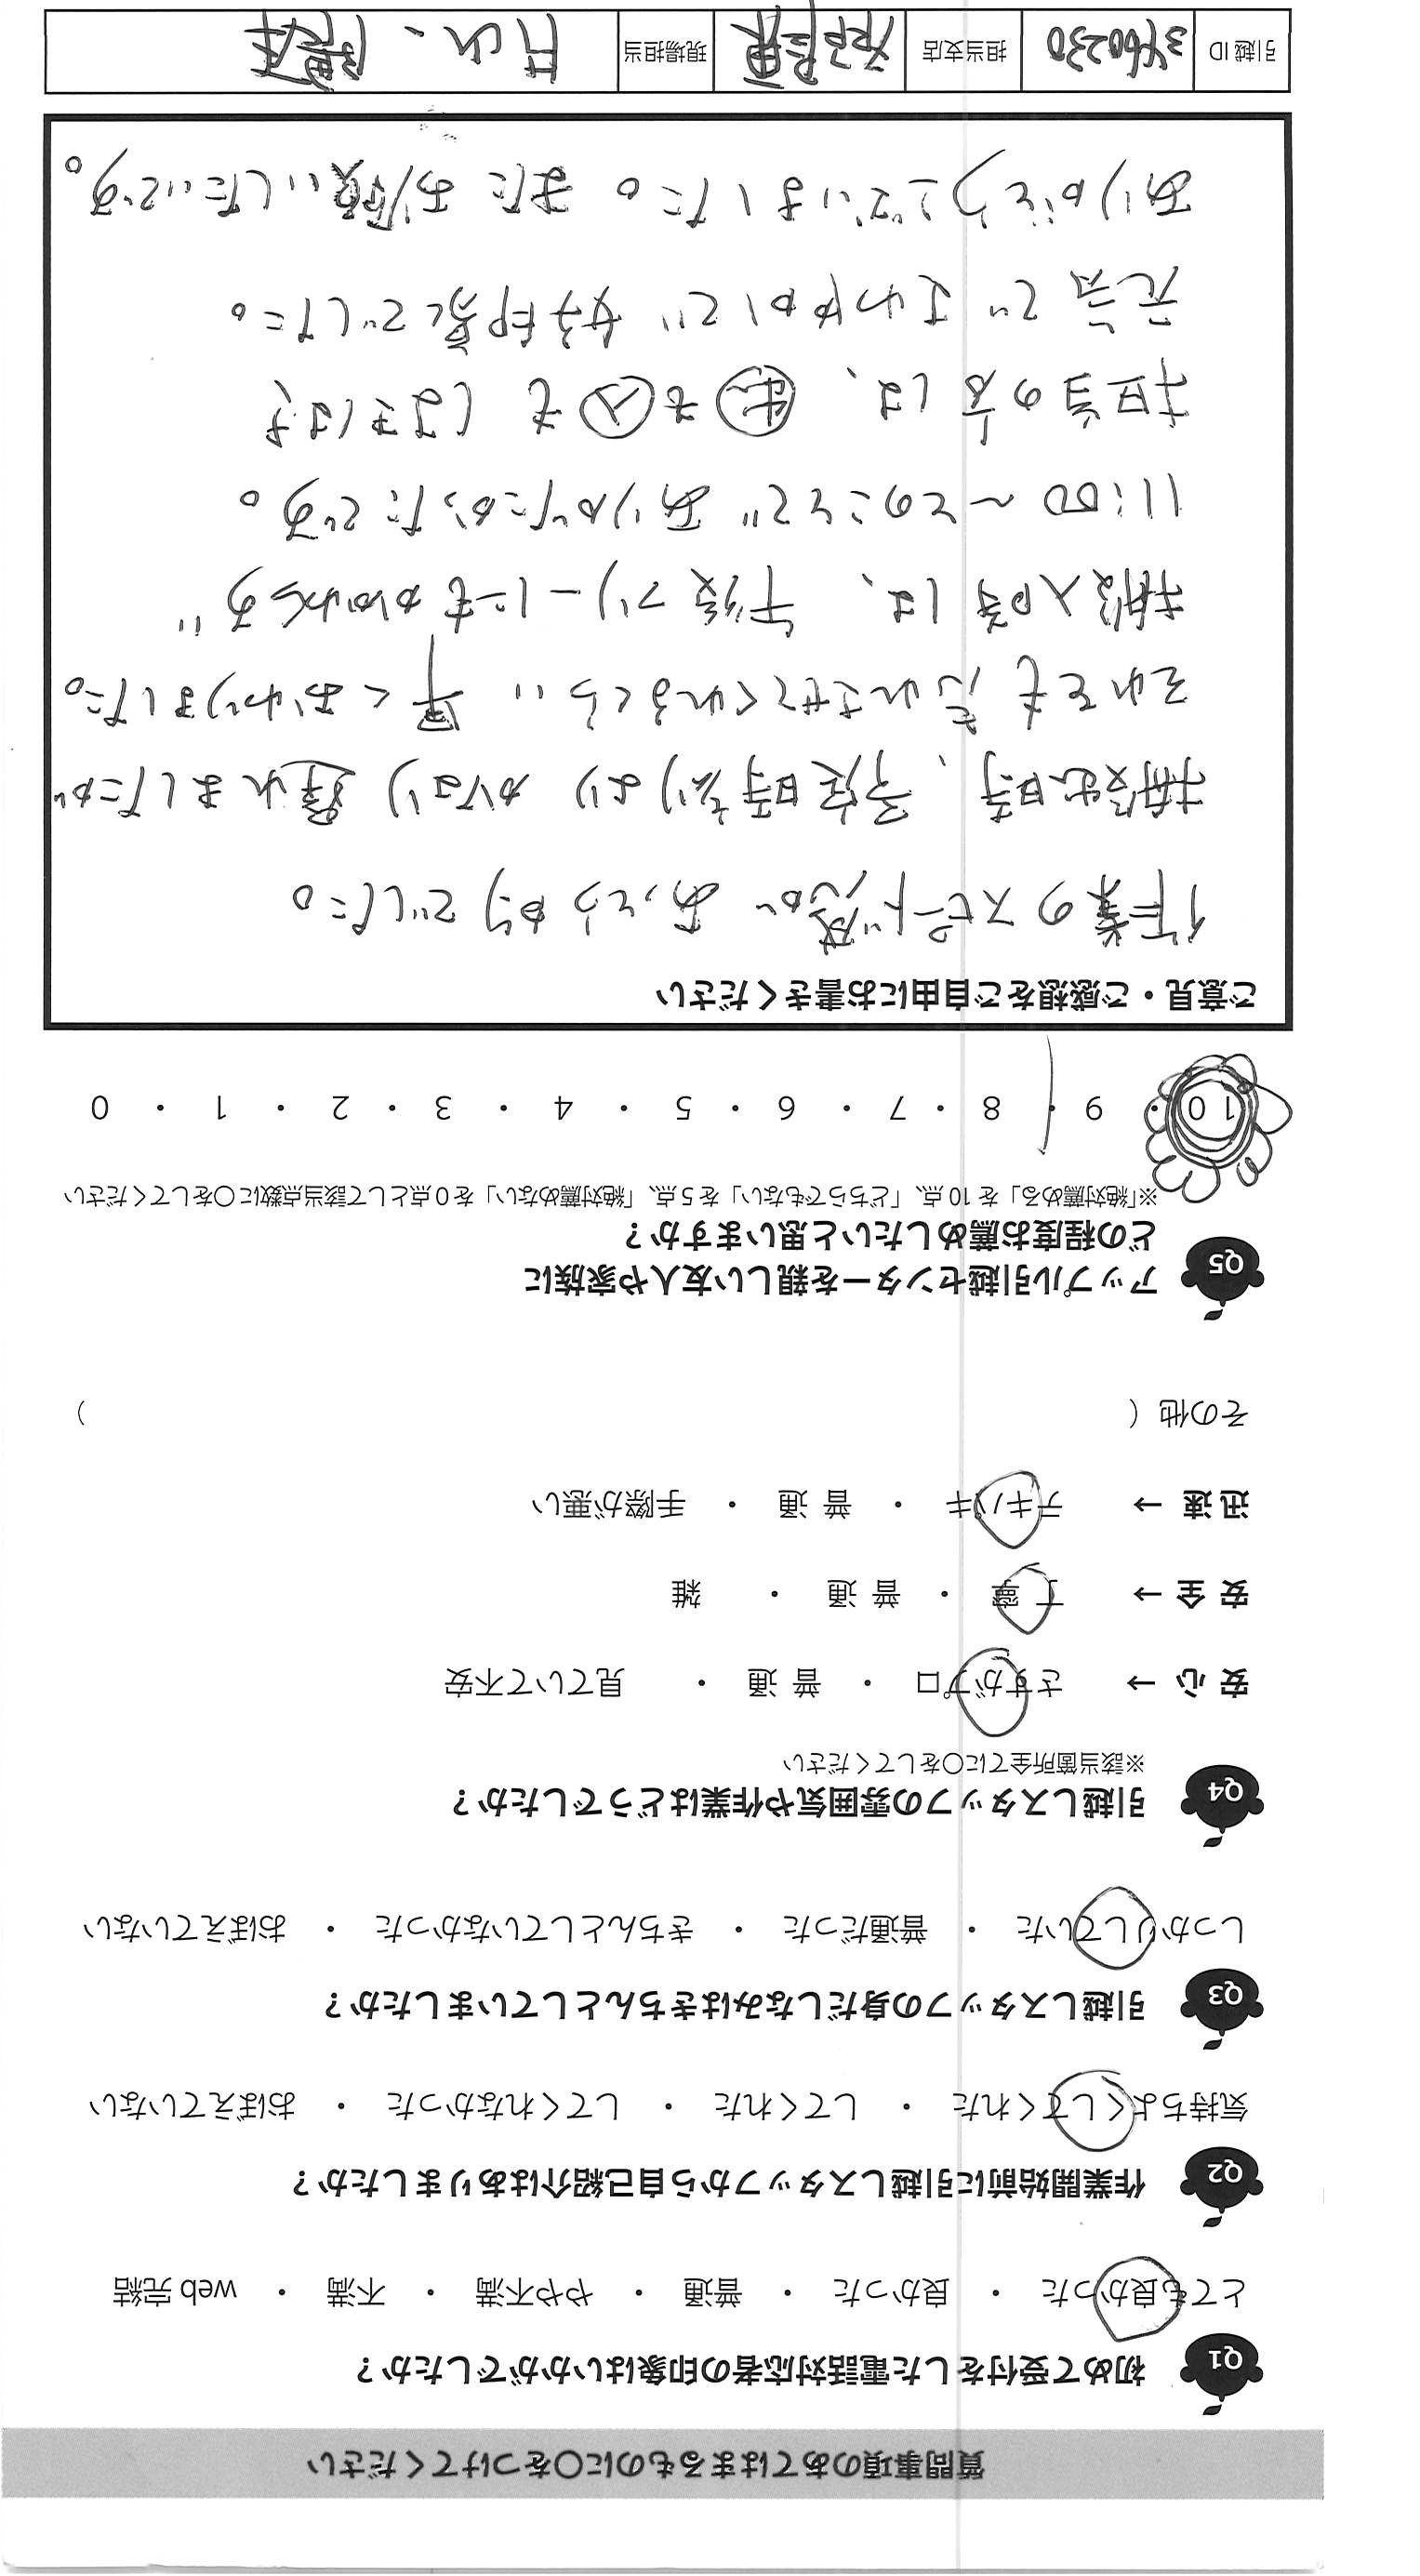 質問事項のあてはまるものに〇をつけてください
Q1 初めて受付をした電話対応者の印象はいかがでしたか？
とても良かった ・ 良かった ・ 普通 ・ やや不満 ・ 不満 ・ web 完結
Q2 作業開始前に引越しスタッフから自己紹介はありましたか？
気持ちよくしてくれた ・ してくれた ・ してくれなかった ・ おぼえていない
Q3 引越しスタッフの身だしなみはきちんとしていましたか？
しっかりしていた ・ 普通だった ・ きちんとしていなかった ・ おぼえていない
Q4 引越しスタッフの雰囲気や作業はどうでしたか？
※該当箇所全てに〇をしてください
安 心 → さすがプロ ・ 普 通 ・ 見ていて不安
安 全 → 丁 寧 ・ 普 通 ・ 雑
迅 速 → テキパキ ・ 普 通 ・ 手際が悪い
その他（ ）
Q5 アップル引越センターを親しい友人や家族に
どの程度お薦めしたいと思いますか？
※「絶対薦める」を 10 点、「どちらでもない」を 5 点、「絶対薦めない」を 0 点として該当点数に〇をしてください
10 ・ 9 ・ 8 ・ 7 ・ 6 ・ 5 ・ 4 ・ 3 ・ 2 ・ 1 ・ 0
ご意見・ご感想をご自由にお書きください
作業のスピード感が あっとう的 でした。
搬出時、予定時刻より かなり 遅れましたが
それをも 忘れさせてくれるくらい 早く おわりました。
搬入時は、午後フリーにもかかわらず
11:00 〜とのことで ありがたかったです。
担当の方は、出も入も はきはき
元気で さわやかで 好印象でした。
ありがとうございました。また お願いしたいです。
引越 ID 3460230 担当支店 現場担当